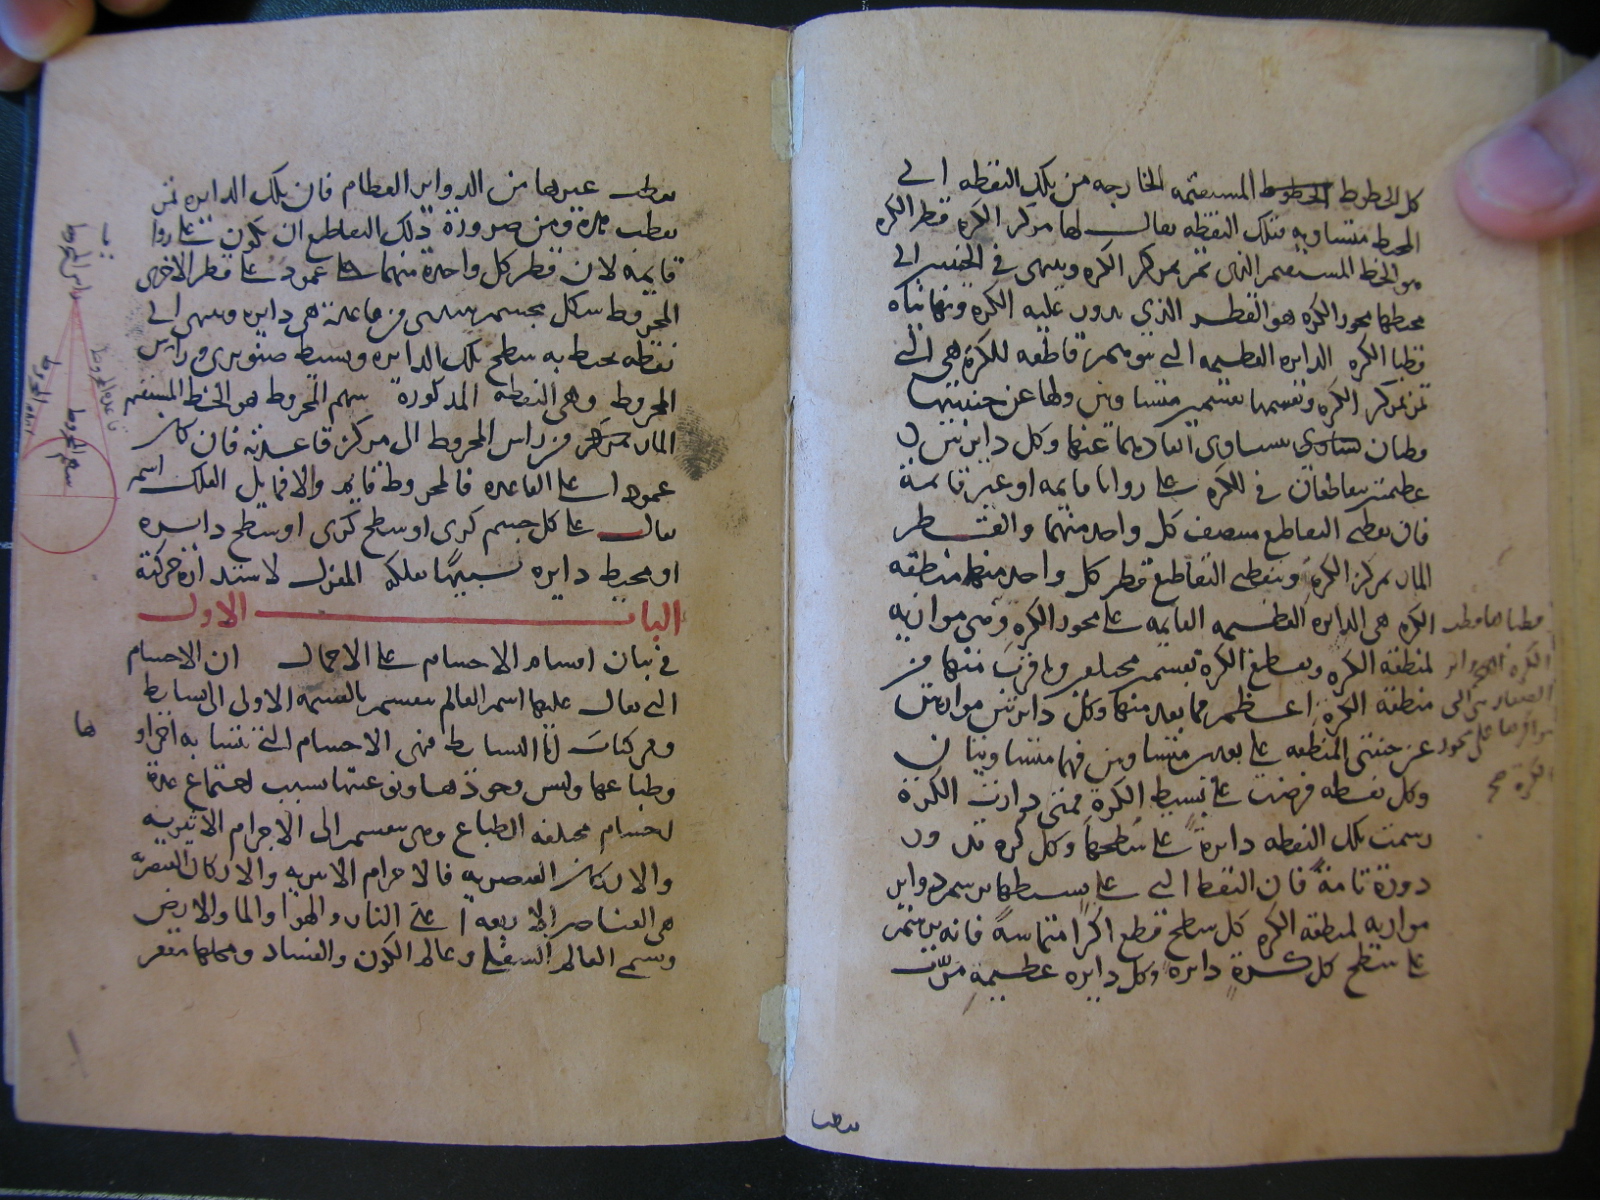 كل الخطوط المستقيمه الخارجه من تلك النقطه الى
المحيط متساويه فتلك النقطه يقال لها مركز الكره قطر الكره
هو الخط المستقيم الذى تمر بمركز الكره وينتهى فى الجنبين الى
محيطها محور الكره هو القطر الذي يدور عليه الكره ونهايتاه
قطبا الكره الدايره العظيمه التى قاطعه للكره هى التى
تمر بمركز الكره وتقسمها بقسمين متساويين ولها عن جنبيتها
قطبان يتساوى ابعاديهما عنها وكل دايرتين
عظيمتين يتقاطعان فى الكره على زوايا قايمه او غير قايمة
فان نقطتى التقاطع تنصف كل واحده منهما والقطر
المار بمركز الكره وبنقطتى التقاطع قطر كل واحده منهما منطقه
الكره هى الدايره العظيمه القايمه على محور الكره وهى موازيه
لمنطقه الكره ويقطع الكره بقسمين مختلفين وما قرب منها من
منطقه الكره اعظم مما بعد منها وكل دايرتين موازيتين
عن جنبتى المنطقه على بعدين متساويين فهما متساويتان
وكل نقطه فرضت على بسيط الكرة فمتى دارت الكرة
رسمت تلك النقطه دايرة على سطحها وكل كره تدور
دورة تامة فان النقط التى على بسيطها يرسم دواير
موازيه لمنطقه الكره كل سطح قطع اكرا متماسة فانه يرتسم
على سطح كل كرة دايره وكل دايره عظيمة مرّت
قطباها قطبا
الكرة
الصغار هى التى
على محور
الكرة صح
بقطب
بقطب غيرها من الدواير العظام فان تلك الدايره تمر
بقطب هذه ومن ضرورة ذلك التقاطع ان يكون على زوايا
قايمه لان قطر كل واحدة منهما عمود على قطر الاخرى
المخروط شكل مجسم يبتدى من قاعدة هى دايره وينتهى الى
نقطه يحيط به سطح تلك الدايره وبسيط صنوبرى وراس
المخروط وهى النقطه المذكورة سهم المخروط هو الخط المستقيم
المار من راس المخروط الى مركز قاعدته فان كان
عمودا على القاعده فالمخروط قايم والا فمايل الفلك اسم
يقال على كل جسم كرى او سطح كرى او سطح دايره
او محيط دايره تشبيها بفلكه المغزل لاستدارة حركته
الباب الاول
فى بيان اقسام الاجسام على الاجمال ان الاجسام
التى يقال عليها اسم العالم ينقسم بالقسمه الاولى الى بسايط
ومركبات اما البسايط فهى الاجسام التى تتشابه اجزاو
وطباعها وليس وجودها ونوعيتها بسبب اجتماع عدة
اجسام مختلفه الطباع وهى ينقسم الى الاجرام الاثيريه
والاركان العنصريه فالاجرام الاثيريه والاركان العنصريه
هى العناصر الاربعه اعنى النار والهوا والما والارض
ويسمى العالم السفلى وعالم الكون والفساد ومحلها مقعر
راس المخروط
سهم المخروط
ها